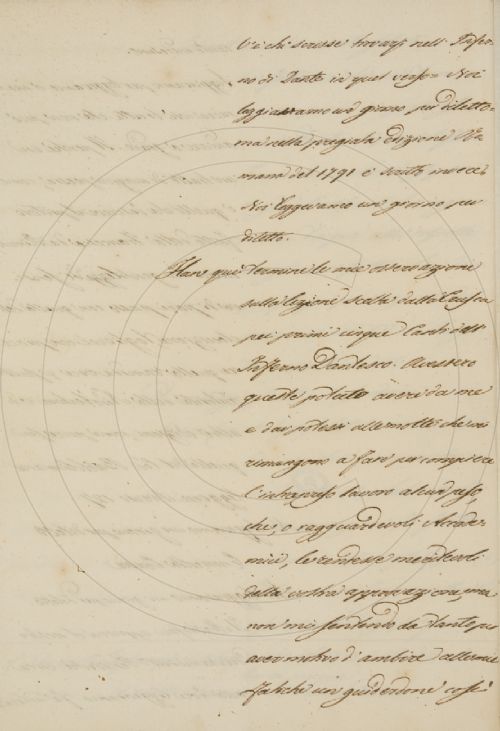 V'è chi scrisse trovarsi nell'Infer-
no di Dante in quel verso = Noi
leggiavamo un giorno per diletto =
ma nella pregiata Edizione Ro-
mana del 1791 è scritto invece:
Noi leggevamo un giorno per
diletto.
Han quì termine le mie osservazioni
sulla lezione scelta dalla Crusca
pei primi cinque Canti dell'
Inferno Dantesco. Avessero
queste potuto avere da me
e dai potessi alle molte che mi
rimangono a fare per compiere
l'intrapreso lavoro alcun peso
che, o ragguardevoli Accade-
mici, le rendesse meritevoli
della vostra approvazione, ma
non mi sentendo da tanto per
aver motivo d'ambire alle mie
fatiche un guiderdone così